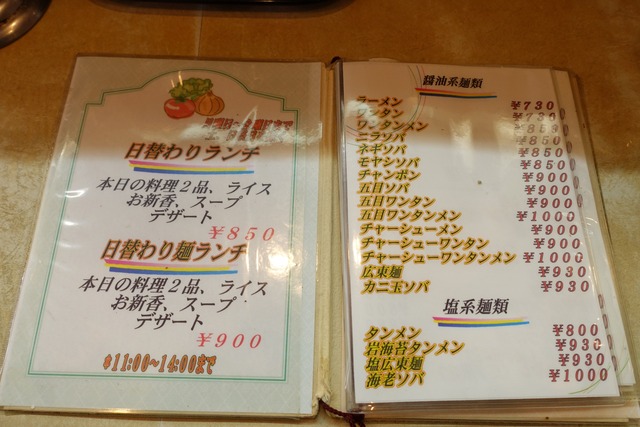 日替わりランチ
本日の料理2品、ライス
お新香、スープ
デザート
¥850
日替わり麺ランチ
本日の料理2品、ライス
お新香、スープ
デザート
¥900
*11:00~14:00まで
醤油系麺類
ラーメン ¥730
ワンタン ¥730
ワンタンメン
ニラソバ ¥850
ネギソバ ¥850
モヤシソバ ¥850
チャンポン ¥900
五目ソバ ¥900
五目ワンタン ¥900
五目ワンタンメン ¥1000
チャーシューメン ¥900
チャーシューワンタン ¥900
チャーシューワンタンメン ¥1000
広東麺 ¥930
カニ玉ソバ ¥930
塩系麺類
タンメン ¥800
岩海苔タンメン ¥930
塩広東麺 ¥930
海老ソバ ¥1000